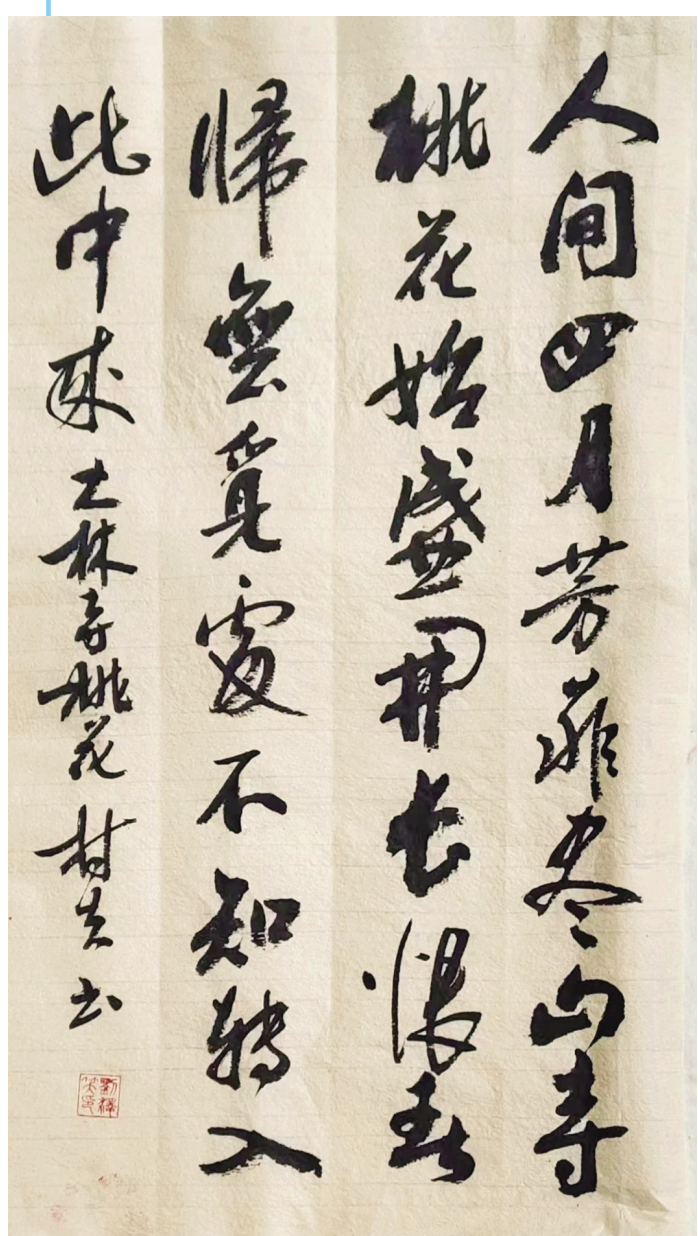 人间四月芳菲尽山寺
桃花始盛開长恨春
帰無覓處不知轉入
此中来 大林寺桃花 书